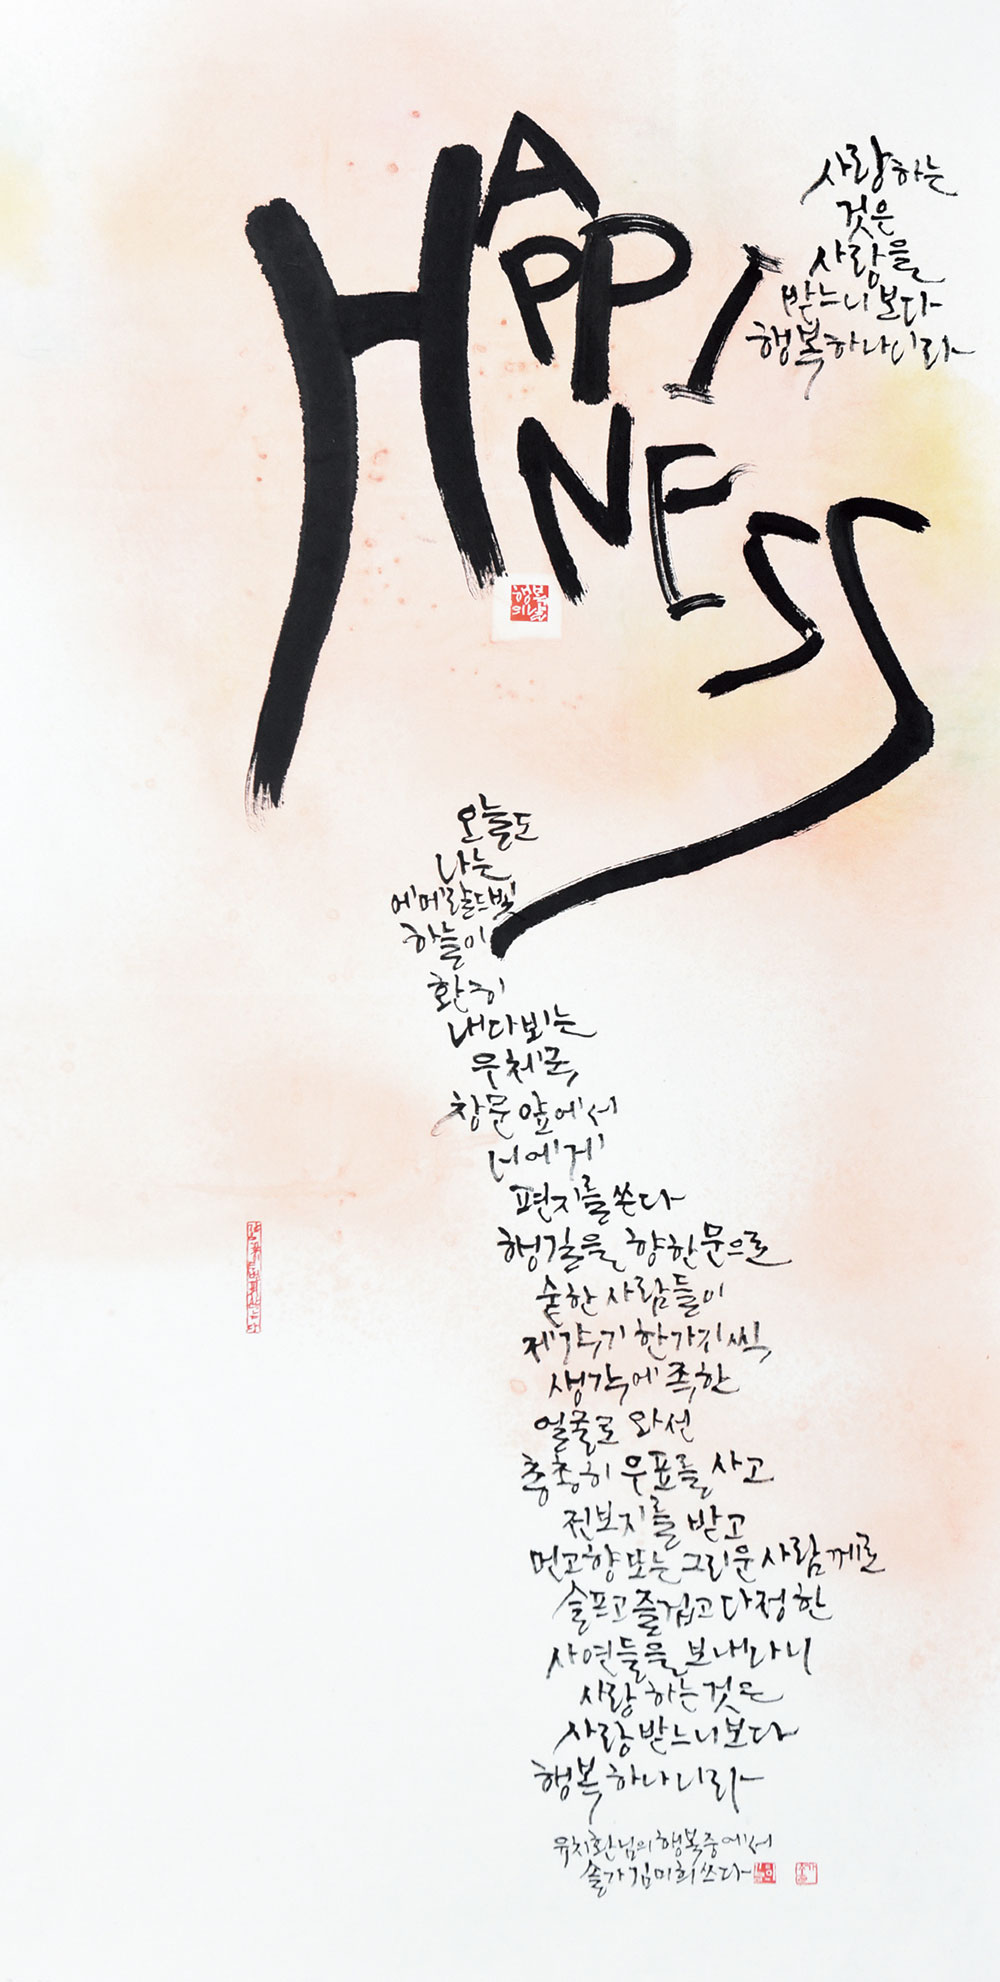 HAPPINESS
사랑하는
것은
사랑을
받느니보다
행복하나니라
행복
의날
오늘도
나는
에메랄드빛
하늘이
환히
내다뵈는
우체국
창문 앞에서
너에게
편지를 쓴다
행길을 향한 문으로
숱한 사람들이
제각기 한가지씩
생각에 족한
얼굴로 와선
총총히 우표를 사고
전보지를 받고
먼 고향 또는 그리운 사람께로
슬프고 즐겁고 다정한
사연들을 보내나니
사랑하는 것은
사랑받느니보다
행복하나니라
유치환님의 행복 중에서
솔가 김미희 쓰다